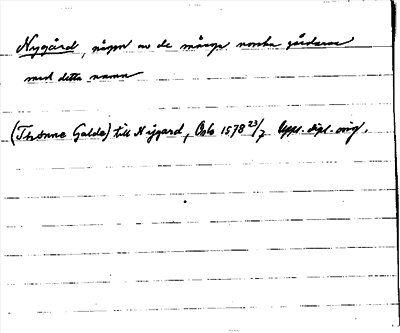 Nygård, någon av de många norska gårdarna
med detta namn
(Thönne Galde) till Nygard, Oslo 1578 23/7 Upps. dipl. orig.